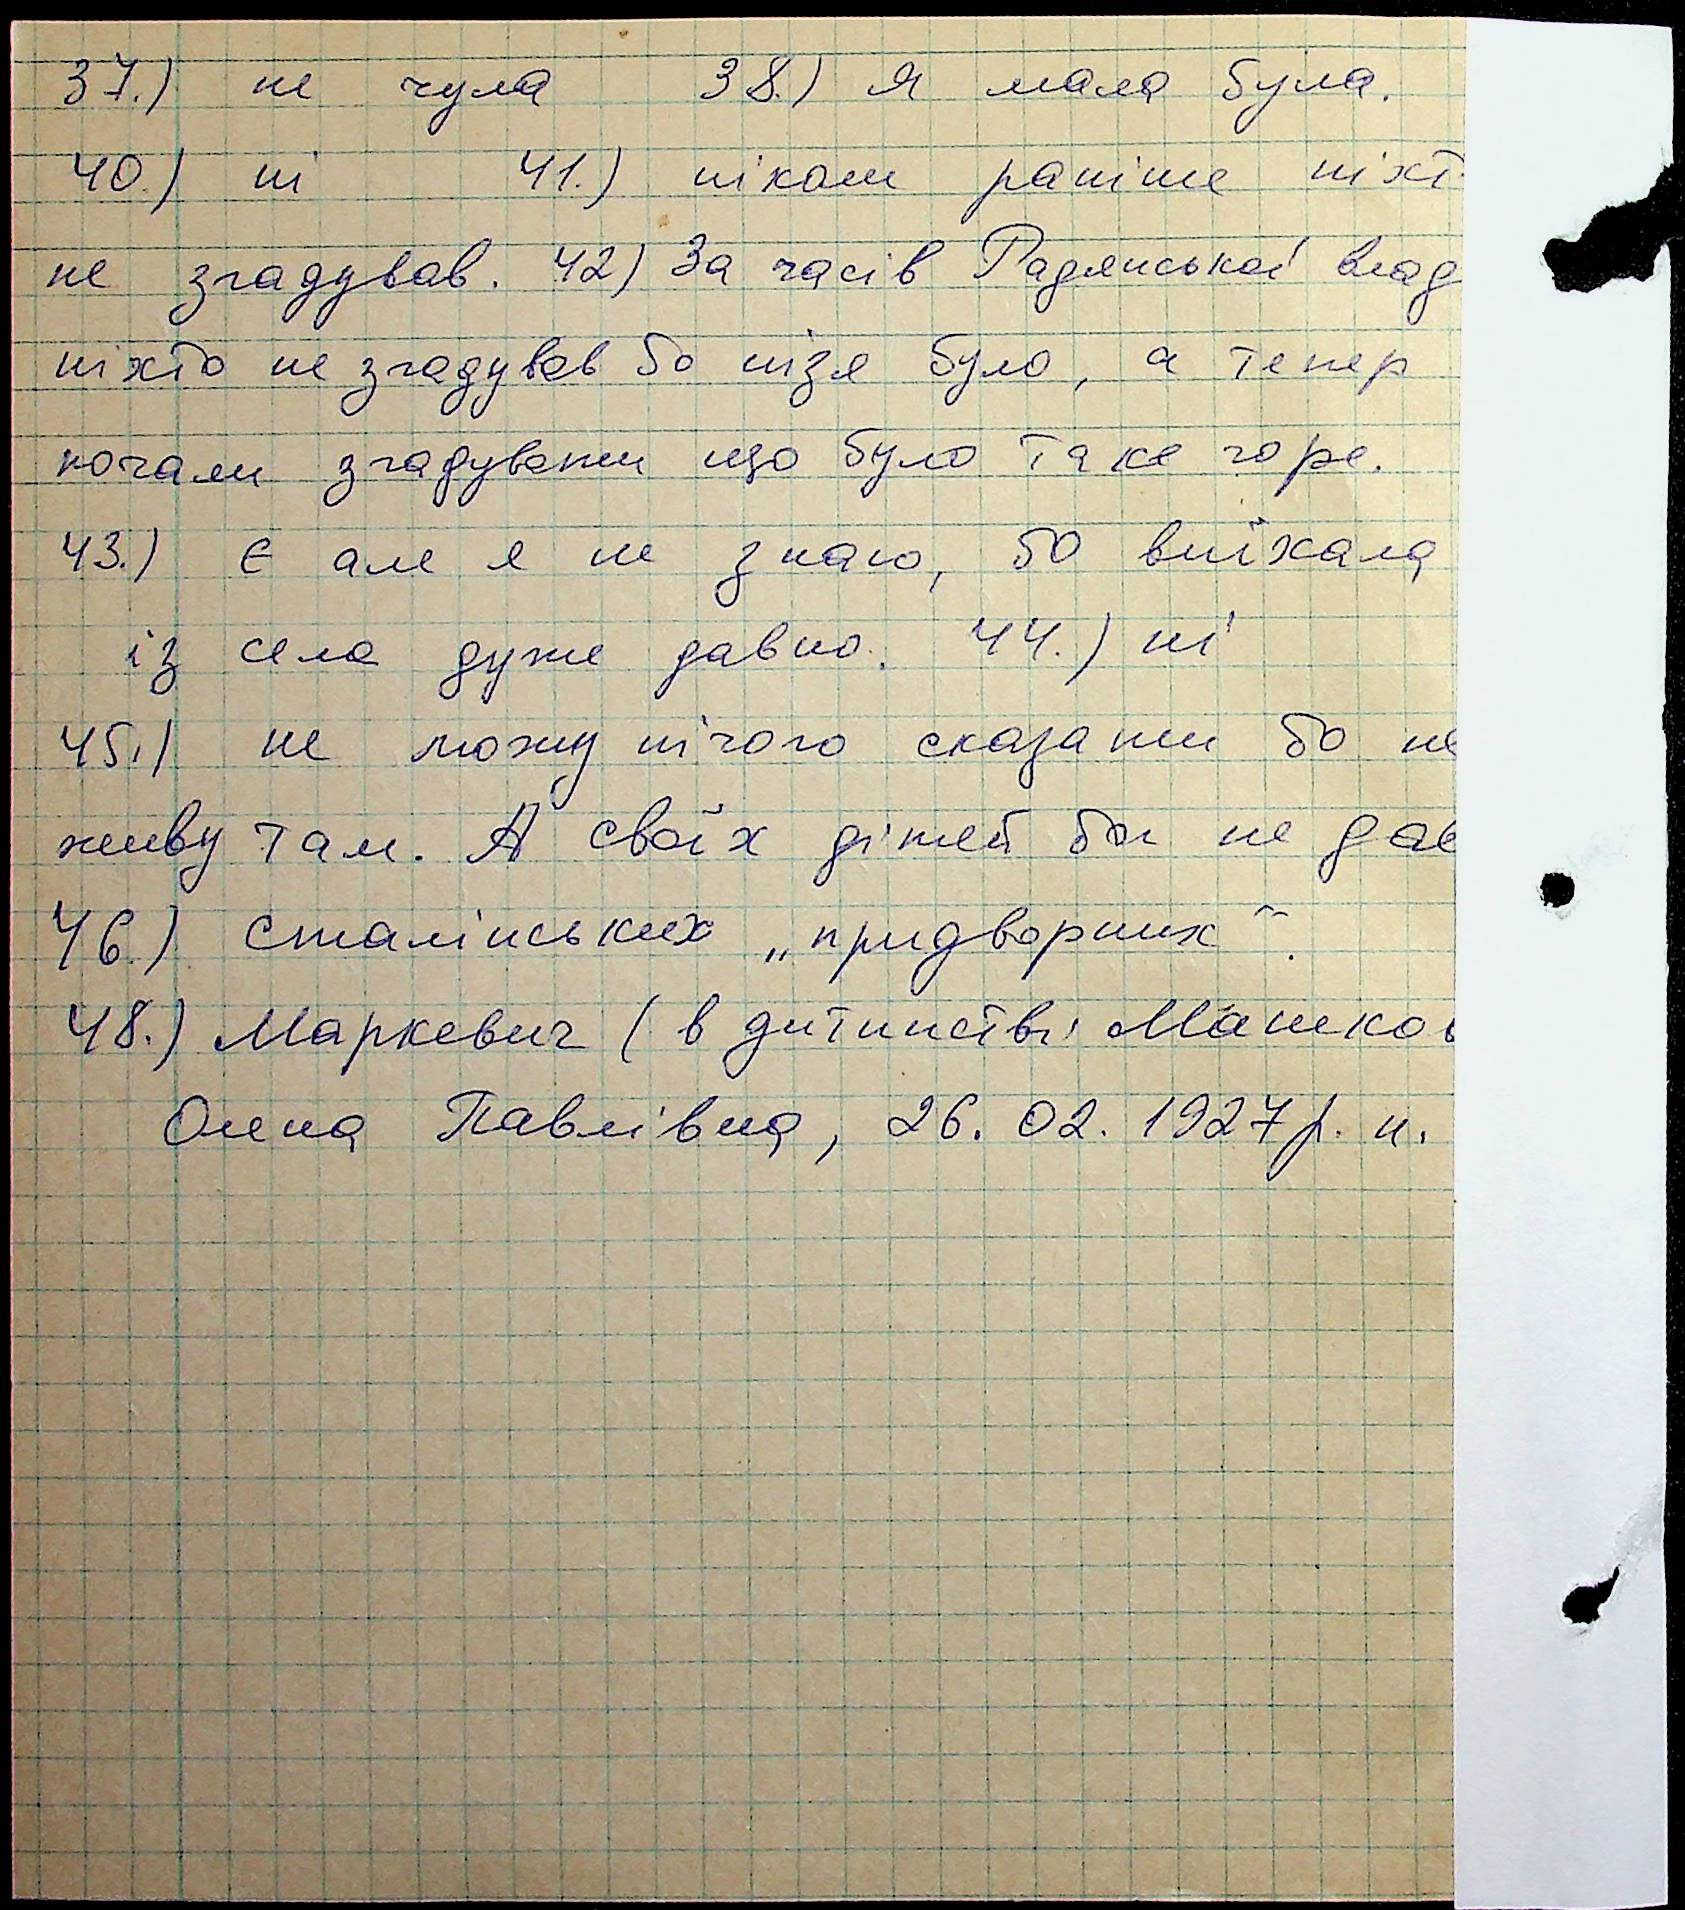 37.) не чула 38.) Я мала була.
40.) ні 41.) ніколи раніше ніхт
не згадував. 42) За часів Радянської влад
ніхто не згадував бо нізя було, а тепер
почали згадувати що було таке горе.
43.) Є але я не знаю, бо виїхала
із села дуже давно. 44.) ні
45.) не можу нічого сказати бо не
живу там. А своїх дітей бог не дав
46.) Сталінських „придворних“.
48.) Маркевич (в дитинстві Машков
Олена Павлівна, 26.02.1927 р. н.